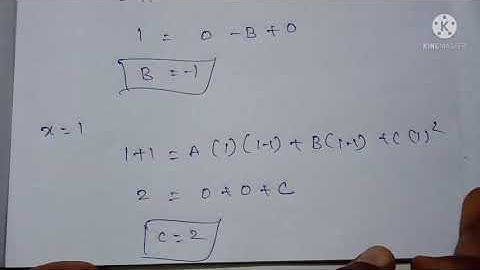 1 = 0 - B + 0
KINEMASTER
B = -1
x = 1
1+1 = A (1) (1-1) + B(1-1) + C (1)²
2 = 0 + 0 + C
C = 2